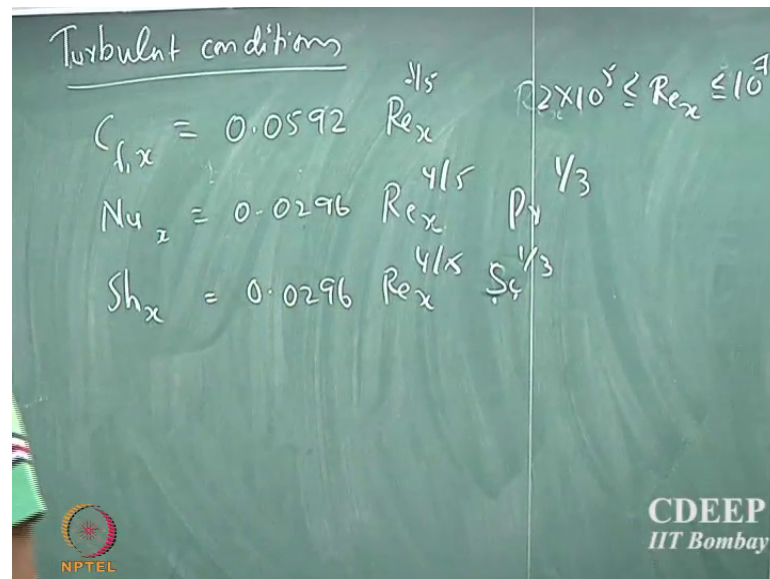 Turbulent conditions
C_{f,x} = 0.0592 Re_x^{-1/5} 2×10^5 ≤ Re_x ≤ 10^7
Nu_x = 0.0296 Re_x^{4/5} Pr^{1/3}
Sh_x = 0.0296 Re_x^{4/5} Sc^{1/3}
NPTEL
CDEEP
IIT Bombay